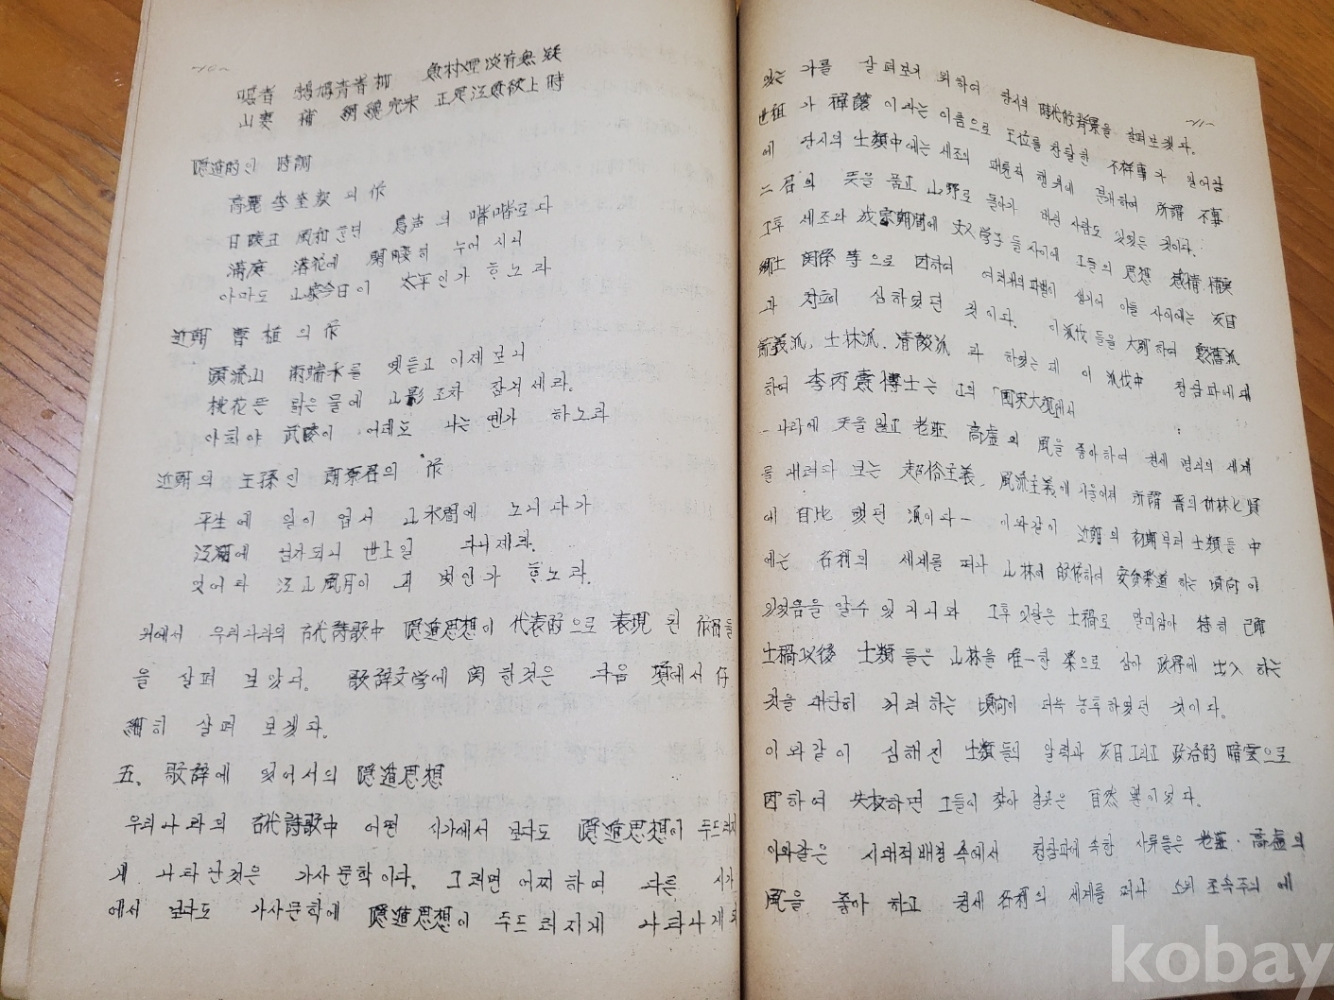 -10-
隱遁的인 時調
高麗 李 의 作
日暖코 風和한면 鳥声의 喈喈로다
滿庭 落花에 閑暇히 누어시니
아마도 山家今日이 太平인가 하노라
近朝 曺植의 作
頭流山 兩端水를 옛듣고 이제보니
桃花뜬 맑은물에 山影조차 잠겨세라.
아희야 武陵이 어데뇨 나는 옌가 하노라
近朝의 王孫인 의 作
平生에 일이 업서 山水間에 노니다가
江湖에 님자되니 世上일 다니제라.
엇더타 江山風月이 긔 벗인가 하노라.
위에서 우리나라의 古代詩歌中 隱遁思想이 代表的으로 表現 된 作品들
을 살펴 보았다. 歌辞文学에 関한것은 다음 項에서 仔
細히 살펴 보겠다.
五. 歌辞에 있어서의 隱遁思想
우리나라의 古代詩歌中 어떤 시가에서 보다도 隱遁思想이 두드러지
게 나타난것은 가사문학이다. 그러면 어찌하여 다른 시가
에서 보다도 가사문학에 隱遁思想이 두드러지게 나타나게
-11-
있는 가를 살펴보기 위하여 당시의 時代的背景을 살펴보겠다.
世祖가 禪讓이라는 이름으로 王位를 찬탈한 不祥事가 일어남
에 당시의 士類中에는 세조의 패륜적 행위에 분개하여 所謂 不事
二君의 뜻을 품고 山野로 돌아가 버린 사람도 있었든 것이다.
그후 세조와 成宗期間에 文人学子들 사이에 그들의 思想 感情
鄕土 関係 等으로 因하여 여러개의 파벌이 생기어 이들 사이에는 反目
과 対立이 심하였던 것이다. 이 派伐들을 大別하여 勳舊派
節義派, 士林派, 淸談派 라 하였는데 이 派伐中 청담파에 대
하여 李丙燾博士는 그의 「国史大観에서
-나라에 뜻을 잃고 老莊 高虛의 風을 좋아하여 현세 명리의 세계
를 내려다 보는 超俗主義, 風流主義에 기울어져 所謂 晋의 竹林七賢
에 自比 했던 派이다- 이와같이 近朝의 初期부터 士類들 中
에는 名利의 세계를 떠나 山林에 하여 安貧樂道 하는 傾向이
있었음을 알수 있거니와 그후 잇달은 士禍로 말미암아 特히 己卯
士禍以後 士類들은 山林을 唯一한 樂으로 삼아 政界에 出入 하는
것을 대단히 꺼려하는 傾向이 더욱 농후하였던 것이다.
이와같이 심해진 士類들의 알력과 反目 그리고 政治的 暗雲으로
因하여 失权하면 그들이 찾아 갈곳은 自然 뿐이었다.
이와같은 시대적배경 속에서 청담파에 속한 사류들은 老莊·高虛의
風을 좋아 하고 현세 名利의 세계를 떠나 소위 초속주의 에
kobay